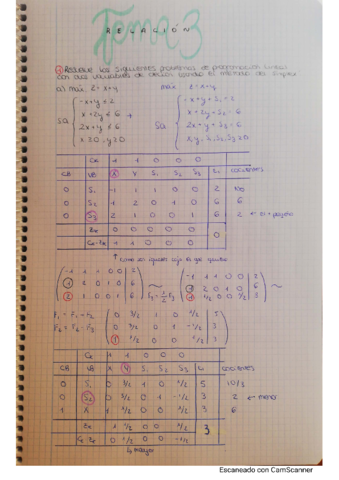 Tema 3
RELACIÓN
① Resuelve los siguientes problemas de programación lineal
con dos variables de decisión usando el método del Simplex
a) máx Z = x+y
máx Z = x+y
sa
-x+y ≤ 2
x+2y ≤ 6
2x+y ≤ 6
x ≥ 0, y ≥ 0
→
sa
-x+y+S₁ = 2
x+2y+S₂ = 6
2x+y+S₃ = 6
x, y, S₁, S₂, S₃ ≥ 0
Cx 1 1 0 0 0
CB VB X Y S₁ S₂ S₃ L COCIENTES
0 S₁ -1 1 1 0 0 2
0 S₂ 1 2 0 1 0 6 6
0 S₃ 2 1 0 0 1 6
Zx 0 0 0 0 0 0
Cx-Zx 1 1 0 0 0
(-1 1 1 0 0 | 2)
(1 2 0 1 0 | 6)
(2 1 0 0 1 | 6)
F₃ = 1/2 F₃
(-1 1 1 0 0 | 2)
(1 2 0 1 0 | 6)
(1 1/2 0 0 1/2 | 3)
(0 3/2 1 0 1/2 | 5)
(0 3/2 0 1 -1/2 | 3)
(1 1/2 0 0 1/2 | 3)
Cx 1 1 0 0 0
CB VB X Y S₁ S₂ S₃ L COCIENTES
0 S₁ 0 3/2 1 0 1/2 5 10/3
0 S₂ 0 3/2 0 1 -1/2 3 2 ← menor
1 X 1 1/2 0 0 1/2 3 6
Zx 1 1/2 0 0 1/2 3
Cx-Zx 0 1/2 0 0 -1/2
Escaneado con CamScanner